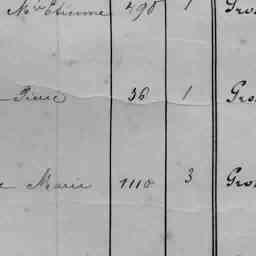 Mie Etienne 790 1 Gros
Pierre 36 1 Gros
Marie 1110 3 Gros